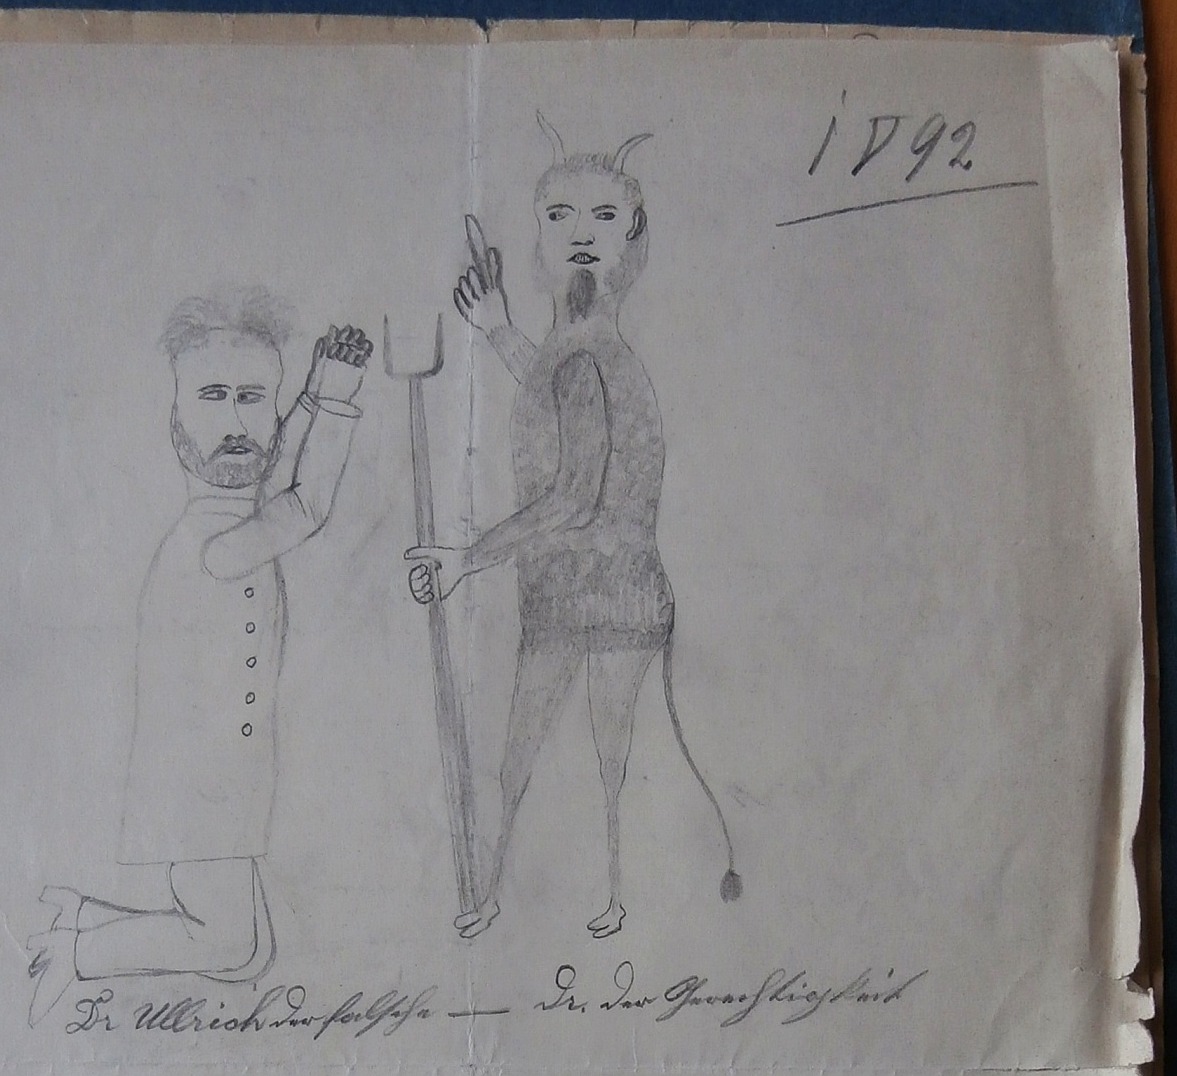 I D 92
Dr Ullrich der falsche — Dr. der Gerechtigkeit